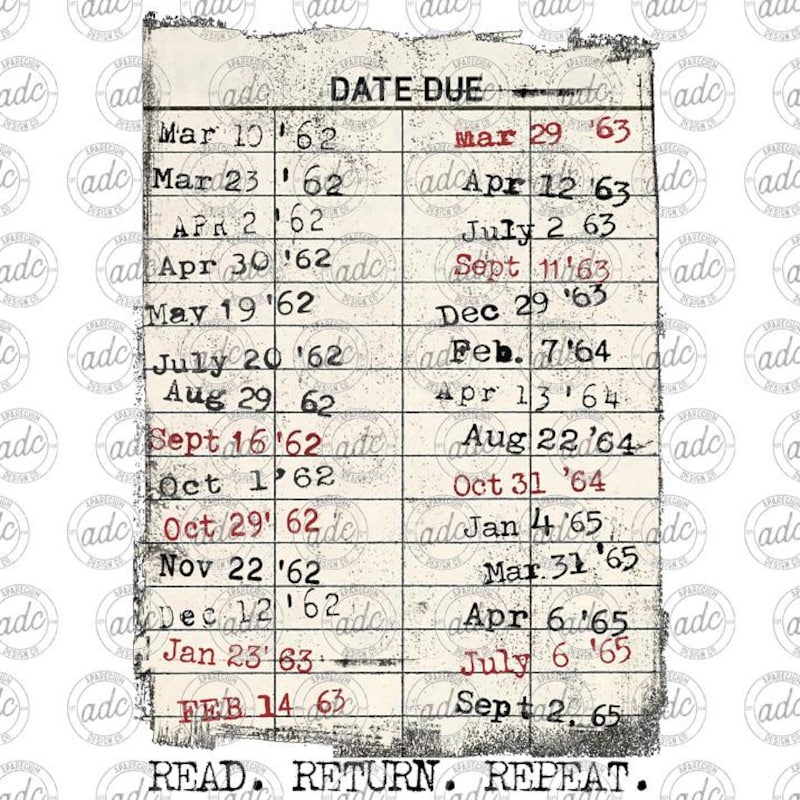 DATE DUE
Mar 10 '62
Mar 23 '62
APR 2 '62
Apr 30 '62
May 19 '62
July 20 '62
Aug 29 62
Sept 16 '62
Oct 1 '62
Oct 29' 62
Nov 22 '62
Dec 12 '62
Jan 23' 63
FEB 14 63
Mar 29 '63
Apr 12 '63
July 2 63
Sept 11 '63
Dec 29 '63
Feb. 7 '64
Apr 13 '64
Aug 22 '64
Oct 31 '64
Jan 4 '65
Mar 31 '65
Apr 6 '65
July 6 '65
Sept 2. 65
READ. RETURN. REPEAT.
APARECIUM
adc
DESIGN CO